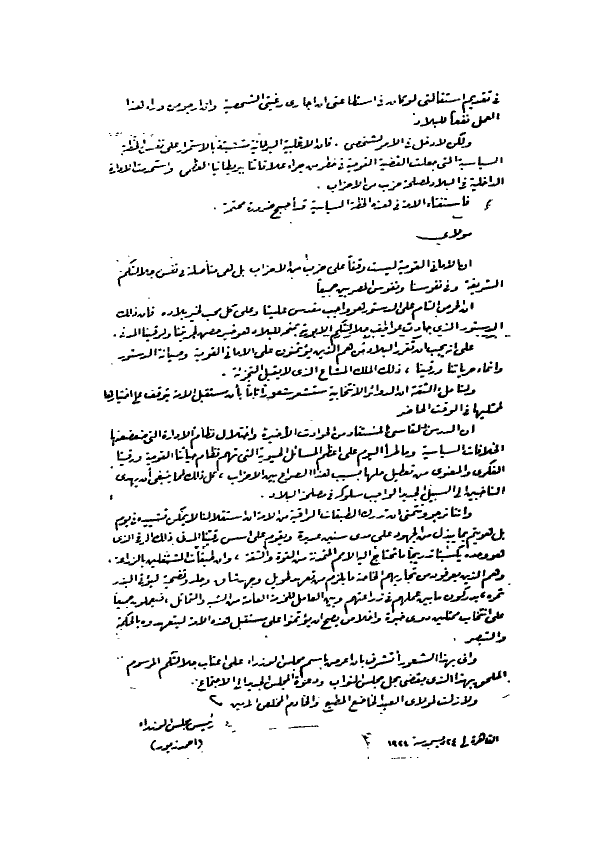 فى تقديم استقالتى لو كان فى استطاعتى ان اجارى رغبتى الشخصية وانا ارجو من وراء هذا
العمل نفعاً للبلاد
ولكن لا دخل فى الامر لشخصى . فان الاغلبية البرلمانية متشبثة بالاستمرار على نفس الخطة
السياسية التى جعلت القضية القومية فى خطر من جراء علاقاتنا ببريطانيا العظمى واستمرت الادارة
الداخلية فى البلاد لمصلحة حزب من الاحزاب .
فاستفتاء الامة فى هذه الخطة السياسية قد أصبح ضرورة محتمة .
مولاى
ان الامانى القومية ليست وقفاً على حزب من الاحزاب بل هى متأصلة فى نفس جلالتكم
الشريفة وفى نفوسنا ونفوس المصريين جميعاً
ان الحرص التام على الدستور لهو واجب مقدس علينا وعلى كل محب لخير بلاده فان ذلك
الدستور الذى جادت به عواطف جلالتكم الابوية لهو خير حصن لحريتنا ولرقينا المدنى .
على انه يجب أن تقرر البلاد من هم الذين يؤتمنون على الامانى القومية وصيانة الدستور
وانماء حرياتنا ورقينا ، ذلك الملك المشاع الذى لا يقبل التجزئة .
ولنا ملء الثقة ان الدوائر الانتخابية ستشعر شعورا تاماً بأن مستقبل الامة يتوقف على اختيارها
لممثليها فى الوقت الحاضر
ان الدرس القاسى المستفاد من الحوادث الأخيرة واختلال نظام الادارة التى ضعضعتها
الخلافات السياسية وما طرأ اليوم على اعظم المسائل الحيوية التى تهم نظام حياتنا القومية ورقينا
الفكرى والمعنوى من تعطيل حلها بسبب هذا الصراع بين الاحزاب ، كل ذلك مما ينبغى أن يهدى
الناخبين الى السبيل الجديد الواجب سلوكه فى مصلحة البلاد .
واننا نرجو ونتمنى ان تدرك الطبقات الراقية من الامة ان استقلالنا لا يمكن تشييده فى يوم
بل هو يتم بما يبذل من الجهود على مدى سنين عديدة ويقوم على اسس رقينا المدنى ذلك الرقى الذى
هو وحده يكسبنا تدريجاً ما تحتاج اليه الامم المتمدنة من القوة والثقة ، وان طبقات المشتغلين بالزراعة ،
وهم الذين يعرفون من تجاربهم الخاصة ما يلزم من زمن طويل وجهد شاق وجلد وتضحية ليؤتى البذر
ثمره ، يدركون ما بين عملهم فى زراعتهم وبين العامل للخدمة العامة من الشبه والتماثل ، فيعملون جميعاً
على انتخاب ممثلين ذوى خبرة واخلاص يصح ان يؤتمنوا على مستقبل هذه الامة ليتعهدوه بالحكمة
والتبصر .
وانى بهذا الشعور أتشرف بان اعرض باسم مجلس الوزراء على اعتاب جلالتكم المرسوم
الملحق بهذا الذى يقضى بحل مجلس النواب ودعوة المجلس الجديد الى الاجتماع .
ولا زلت لمولاى العبد الخاضع المطيع والخادم المخلص الامين
رئيس مجلس الوزراء
(احمد زيور)
القاهرة فى ٢٤ ديسمبر سنة ١٩٢٤